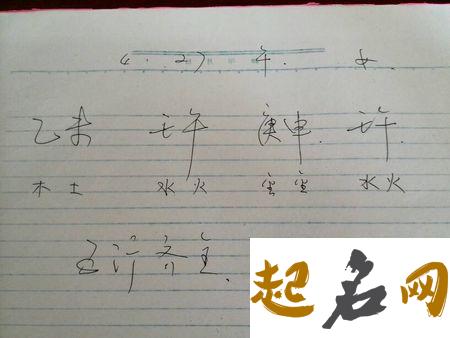 4.27 午. 女
乙未 壬午 庚申 壬午
木土 水火 金金 水火
五行齐全.
起名网